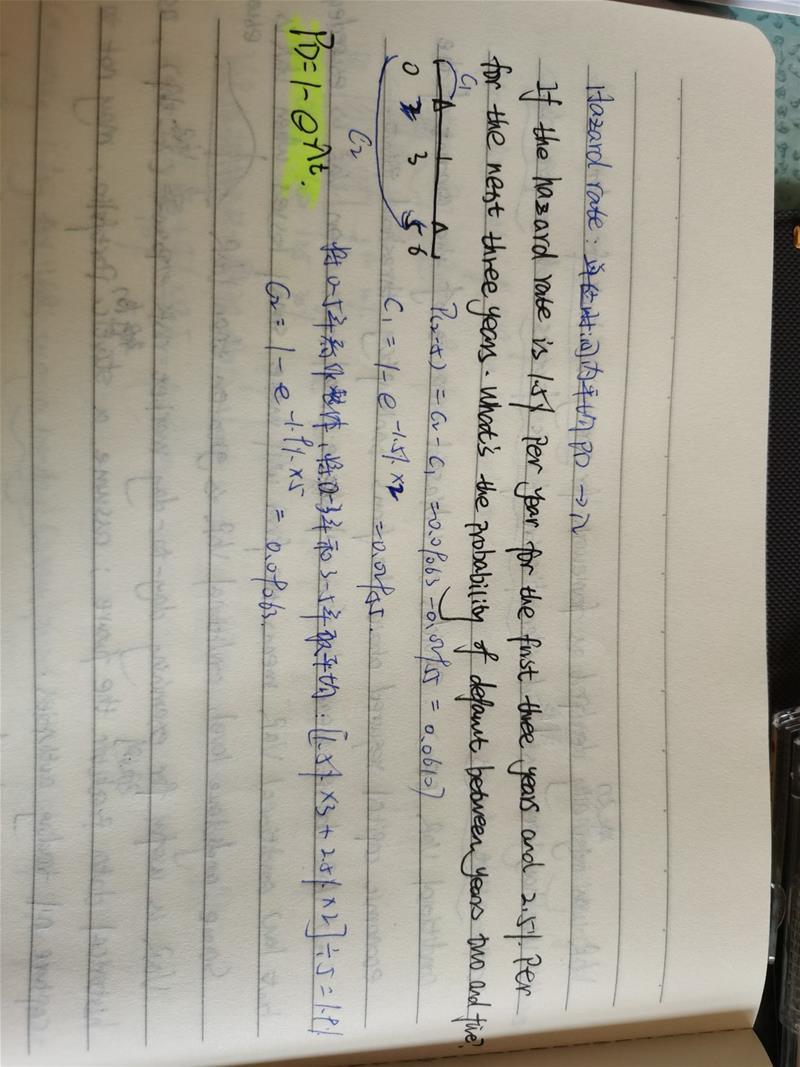 Hazard rate: 单位时间内平均PD → λ
If the hazard rate is 1.5% Per year for the first three years and 2.5% Per
for the next three years. What's the probability of default between years two and five?
C1
0 2 3 5 6
C2
P(2-5) = C2 - C1 = 0.09063 - 0.02955 = 0.06107
C1 = 1 - e^-1.5%×2 = 0.02955.
将0-5年看作整体, 将0-3年和3-5年取平均: [1.5%×3 + 2.5%×2] ÷ 5 = 1.9%
C2 = 1 - e^-1.9%×5 = 0.09063.
PD = 1 - e^λt.